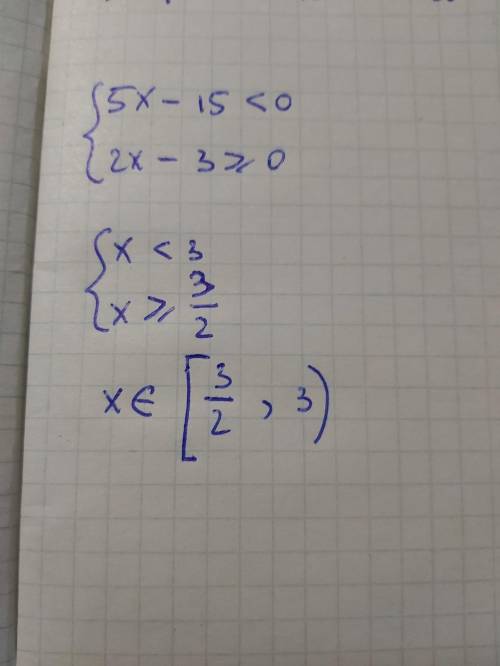 {5x - 15 < 0
{2x - 3 ⩾ 0
{x < 3
{x ⩾ 3/2
x ∈ [3/2 , 3)